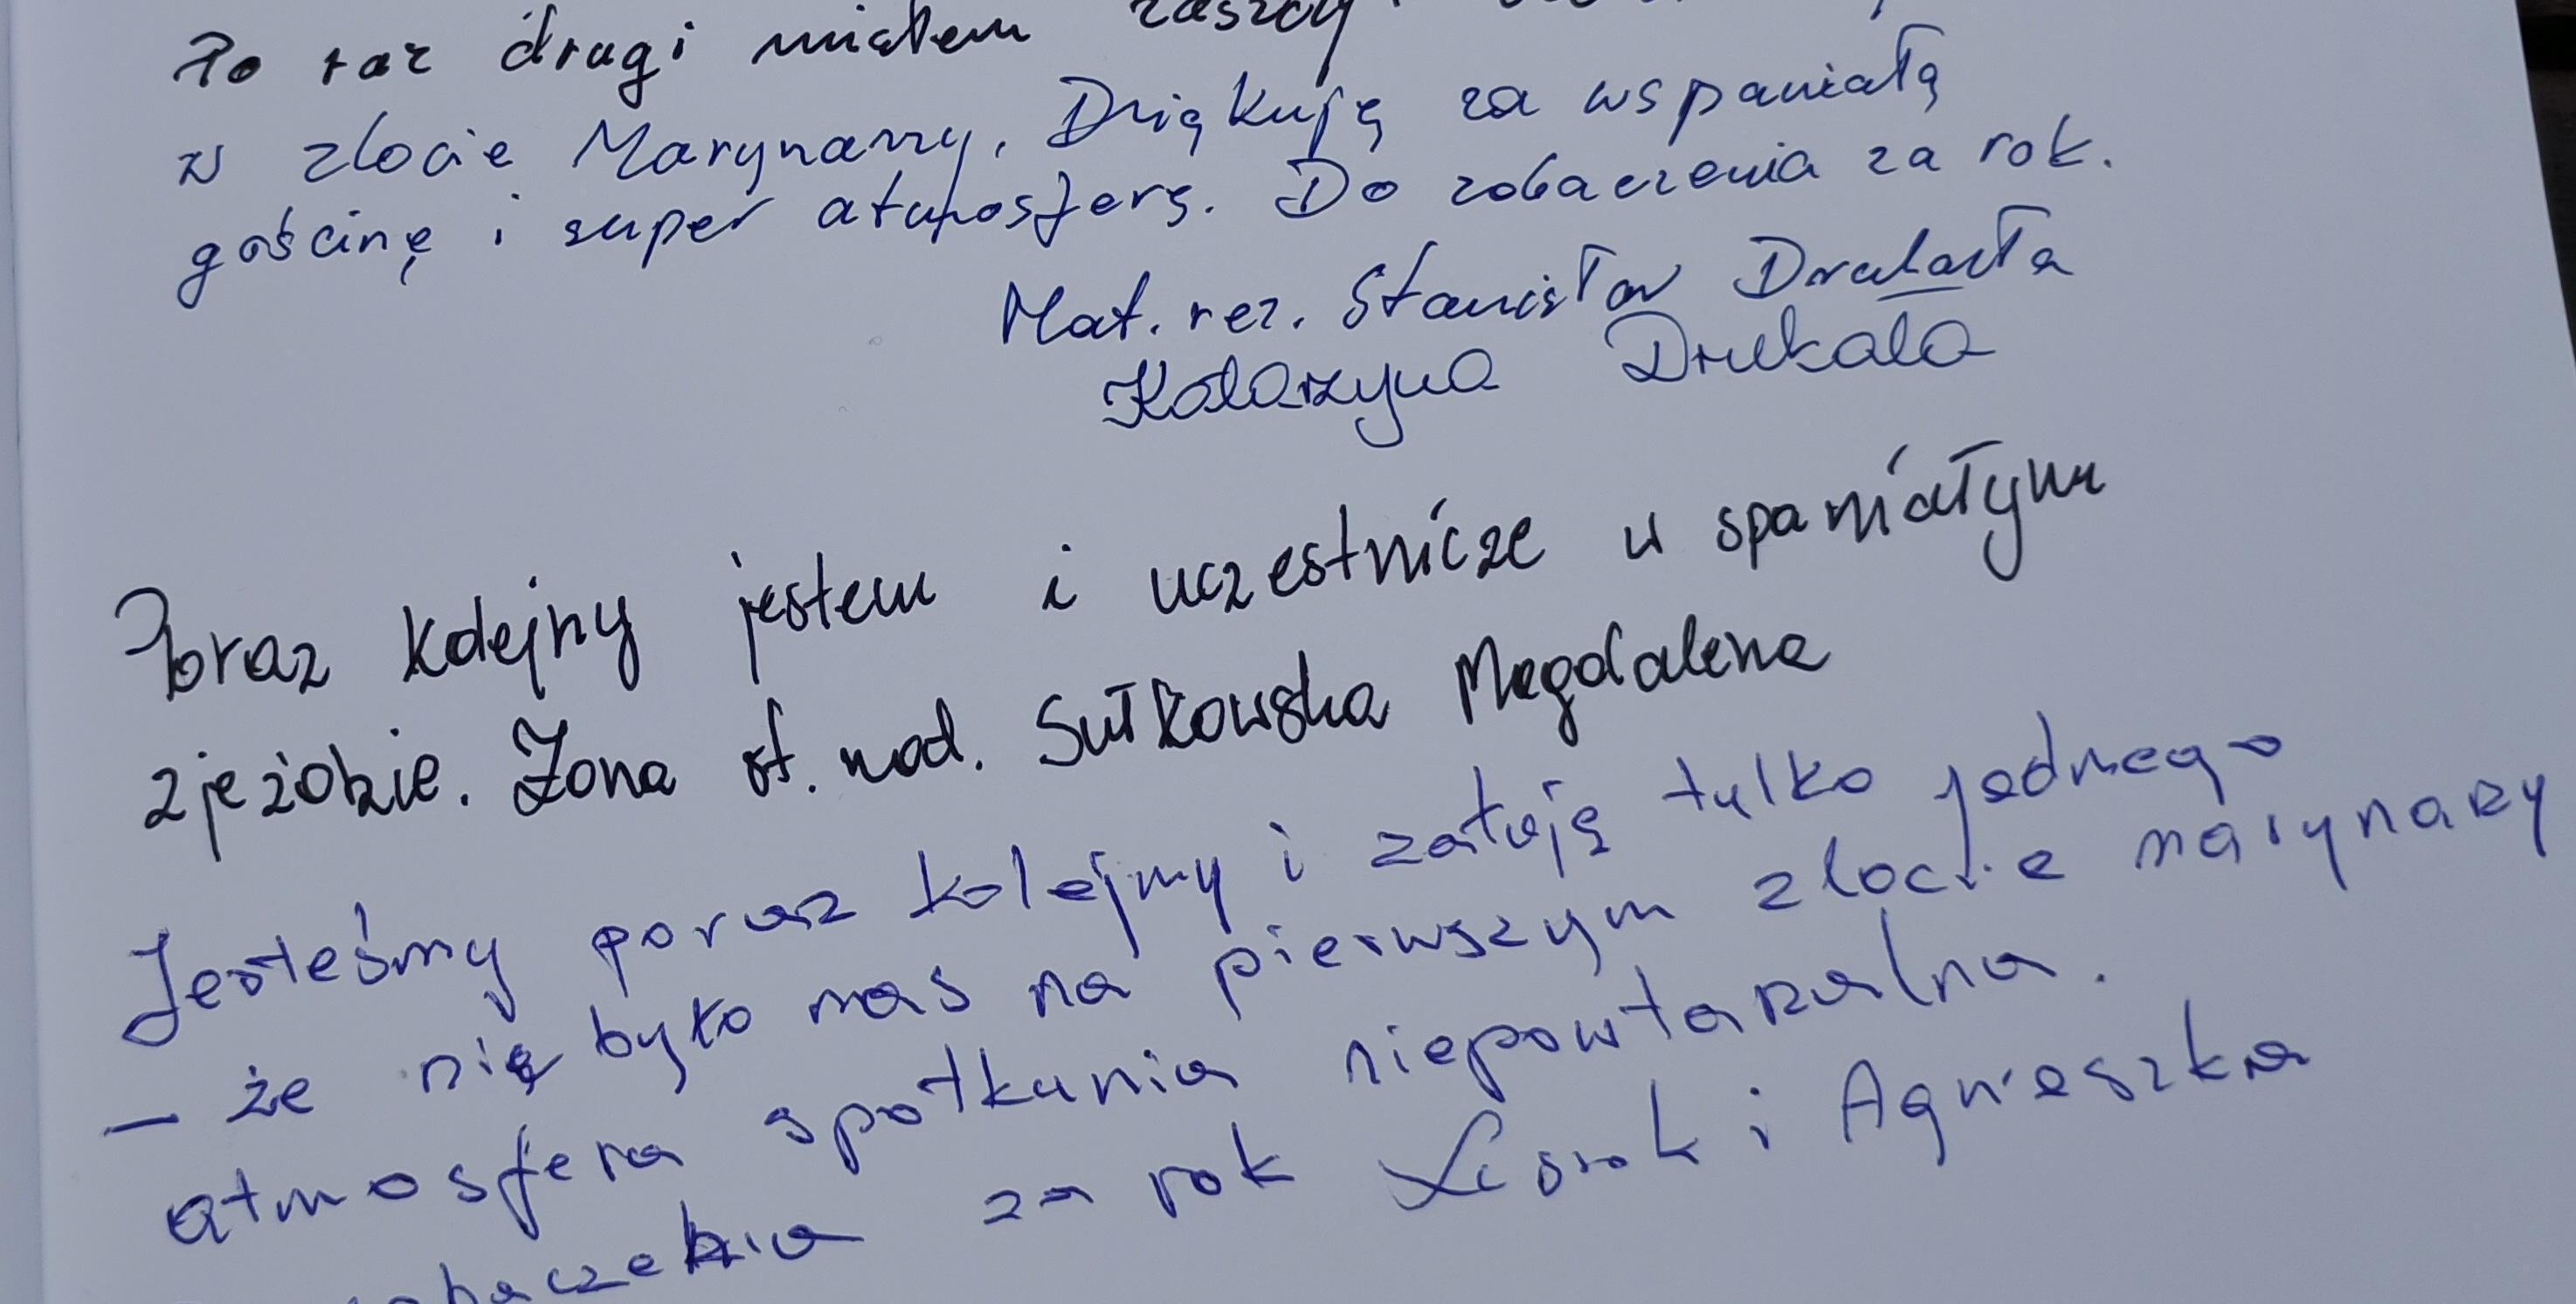 Po raz drugi miałem zaszczyt
w zlocie Marynarzy. Dziękuję za wspaniałą
gościnę i super atmosferę. Do zobaczenia za rok.
Mat. rez. Stanisław Drukała
Katarzyna Drukała
Poraz kolejny jestem i uczestnicze w spaniałym
zjeździe. Żona st. mad. Sułkowska Magdalena
Jesteśmy poraz kolejny i żałuję tylko jednego
- że nie było nas na pierwszym zlocie marynarzy
atmosfera spotkania niepowtarzalna.
zobaczenia za rok i Agnieszka